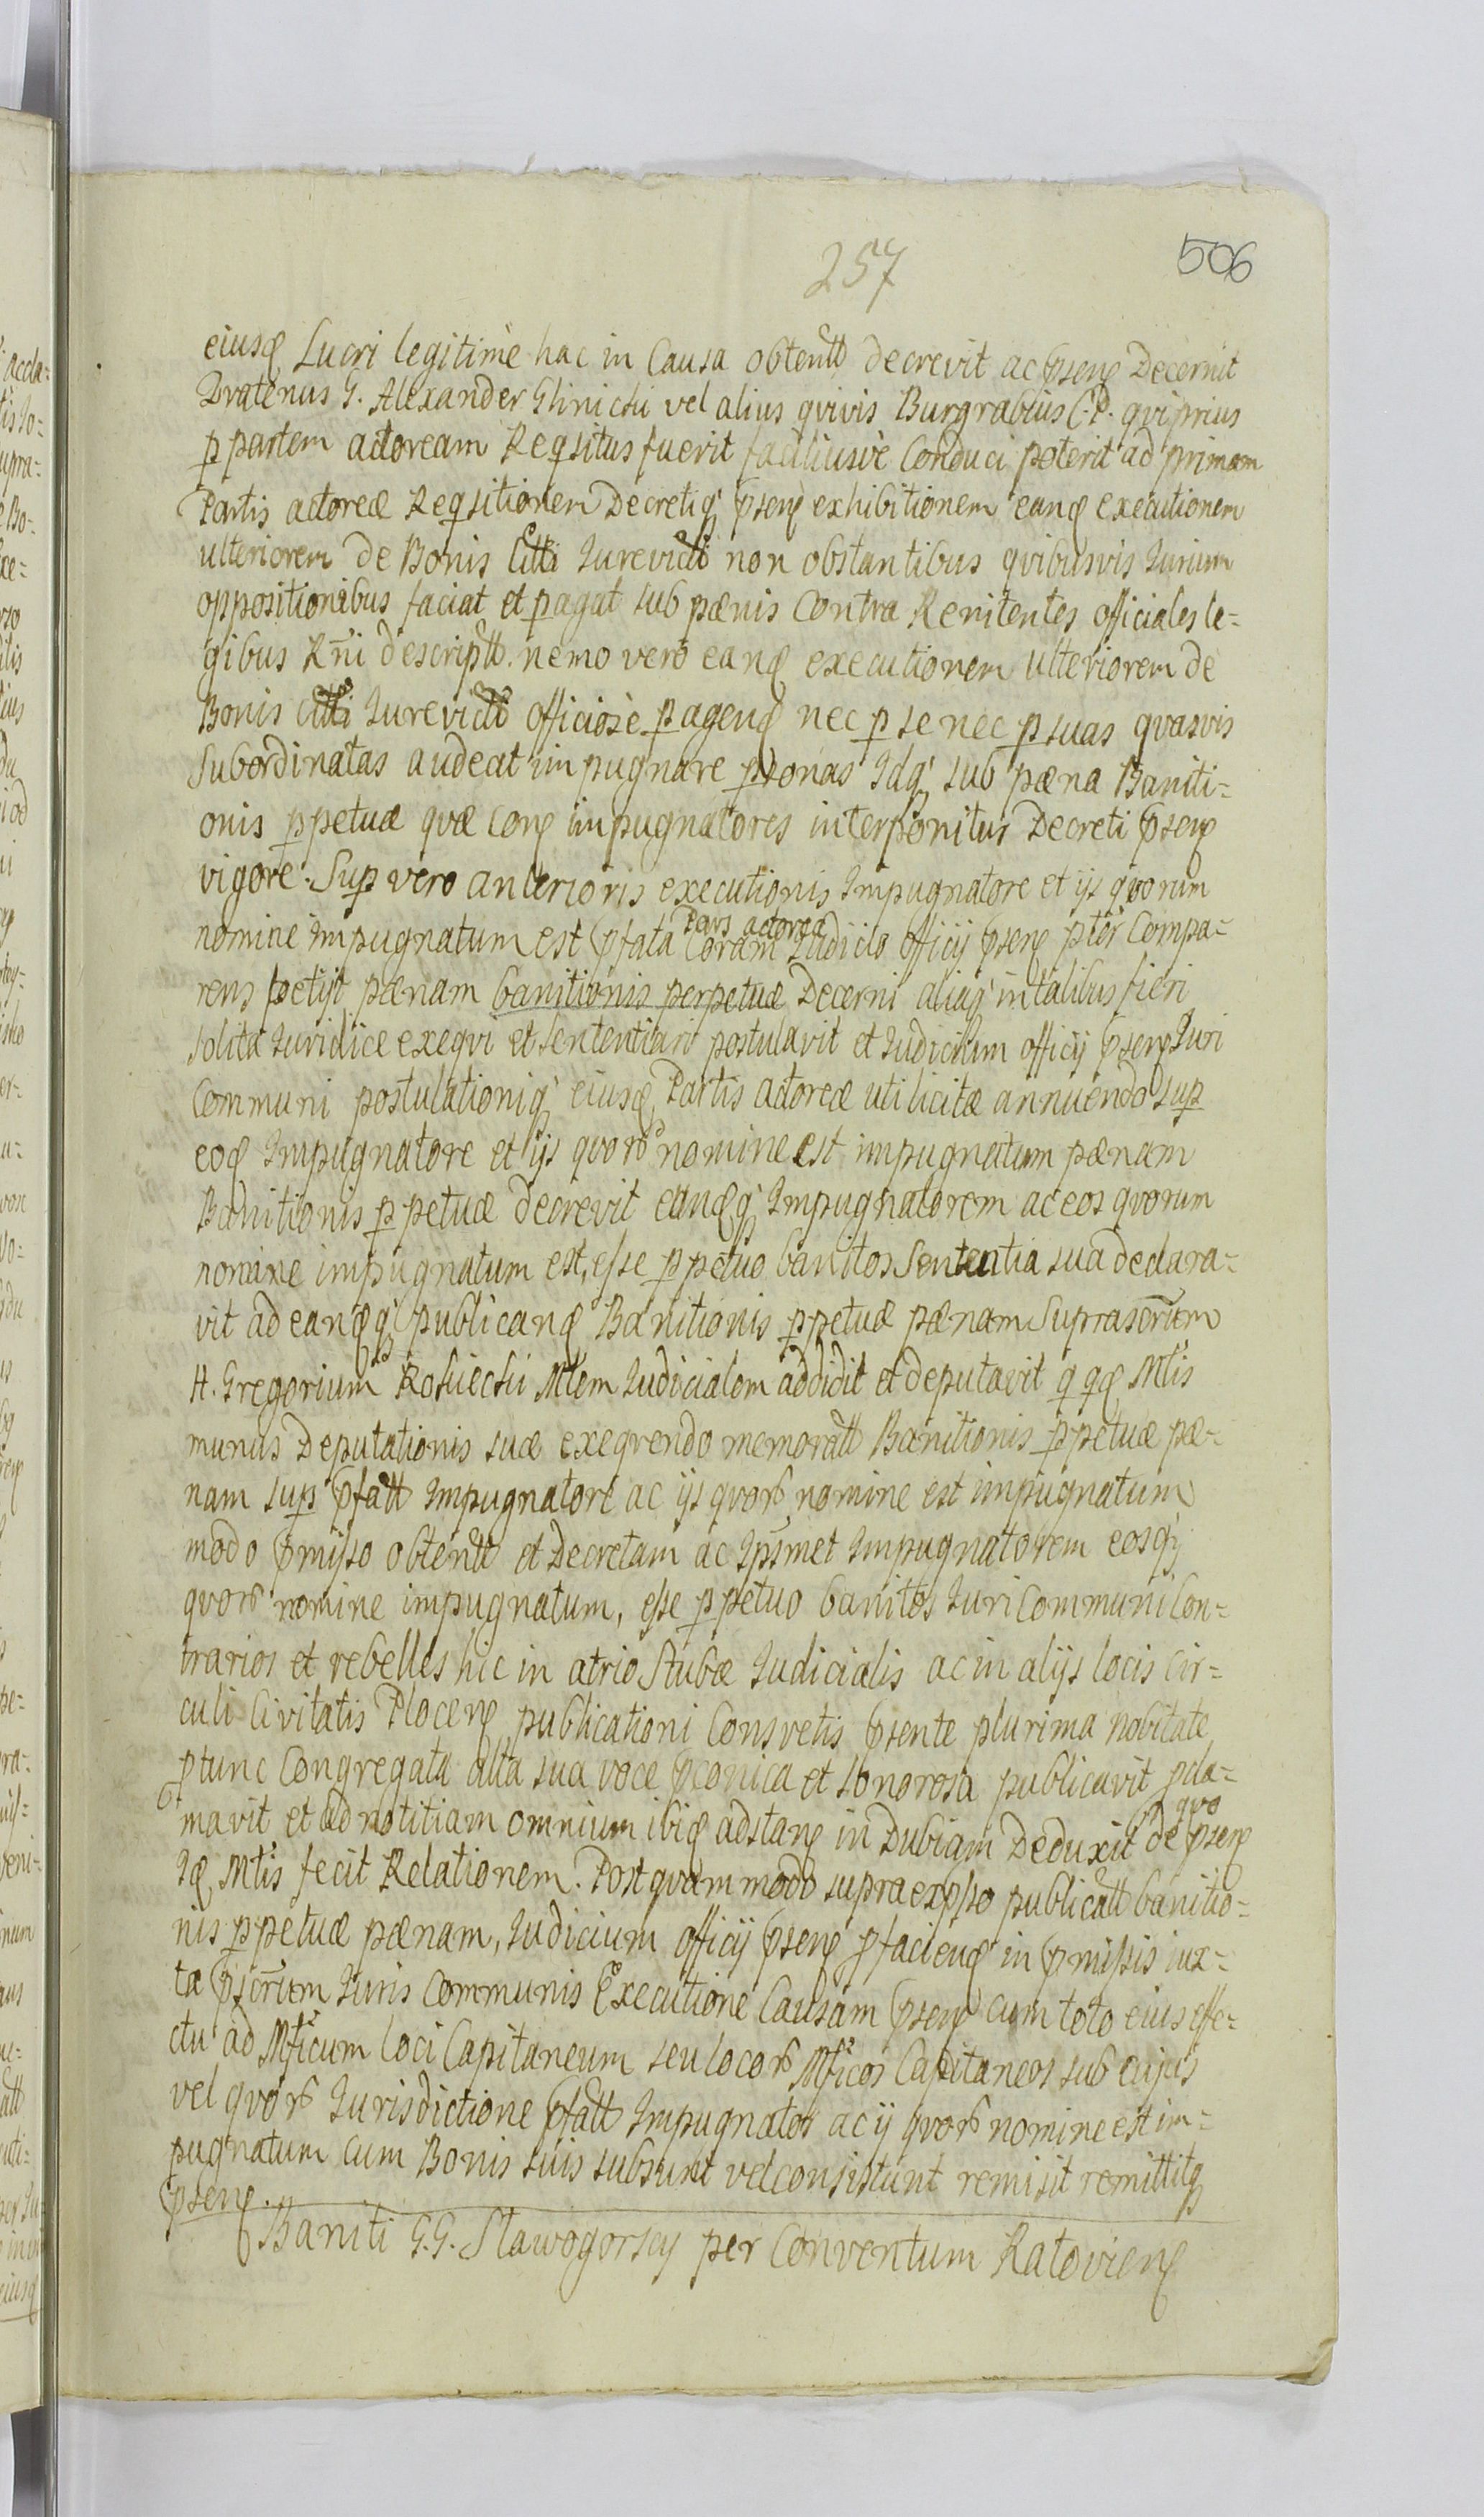 257
506
eiusq Lucri legitimè hac in Causa obtentt decrevit ac psenq Decernit
Qvatenus G. Alexander Glinicki vel alius qvivis Burgrabius C.P. qvi prius
p partem actoream Reqsitus fuerit faciliusvè Conduci poterit ad primam
Partis actoreæ Reqsitionem Decretiq psenq exhibitionem eanq executionem
ulteriorem de Bonis Citti Iurevicti non obstantibus qvibusvis Iurium
oppositionibus faciat et pagat sub pænis Contra Renitentes officiales le=
gibus Rñi descriptt. nemo vero eanq executionem ulteriorem de
Bonis citti Iurevicti officiosè pagenq nec p se nec p suas qvasvis
Subordinatas audeat impugnare psonas Idq sub pæna Baniti=
onis ppetuæ qvæ conq impugnatores interponitur Decreti psenq
vigore. Sup vero anterioris executionis Impugnatore et ijs qvorum
nomine impugnatum est pfata Pars actorea Coram Iudicio officij psenq ptër Compa=
rens petijt pænam banitionis perpetuæ Decerni aliaq in talibus fieri
solita Iuridice exeqvi et sententiari postulavit et Iudicium officij psenq Iuri
Communi postulationiq eiusq Partis actoreæ uti licitæ annuendo sup
eoq Impugnatore et ijs qvorȝ nomine est impugnatum pænam
Banitionis ppetuæ decrevit eunqq Impugnatorem ac eos qvorum
nomine impugnatum est, esse ppetuo banitos Sententia sua declara=
vit ad eanqq publicanq Banitionis ppetuæ pænam Suprascrum
H. Gregorium Kosiecki Mtem Iudicialem addidit et deputavit q qq Mtis
munus Deputationis suæ exeqvendo memoratt Banitionis ppetuæ pæ=
nam sup pfatt Impugnatore ac ijs qvorȝ nomine est impugnatum
modo pmisso obtentt et Decretam ac Ipsmet Impugnatorem eosq
qvorȝ nomine impugnatum, esse ppetuo banitos Iuri Communi Con=
trarios et rebelles hic in atrio Stubæ Iudicialis ac in alijs locis Cir=
culi Civitatis Plocenq publicationi Consvetis psente plurima nobitate
ptunc Congregata alta sua voce pconica et sonorosa publicavit pcla=
mavit et ad notitiam omnium ibiq adstanq in Dubiam Deduxit de quo psenq
Iq Mtis fecit Relationem. Postqvam modo supraexpsso publicatt banitio=
nis ppetuæ pænam, Iudicium officij psenq pfacienq in pmissis iux=
ta pscrum Iuris Communis Executione Causam psenq cum toto eius effe=
ctu ad Mficum loci Capitaneum seu locorȝ Mficos Capitaneos sub cujus
vel qvorȝ Iurisdictione pfatt Impugnator ac ij qvorȝ nomine est im=
pugnatum cum Bonis suis subsunt vel consistunt remisit remittitq
psenq.
Baniti G.G. Sławogorscy per Conventum Ratovienq